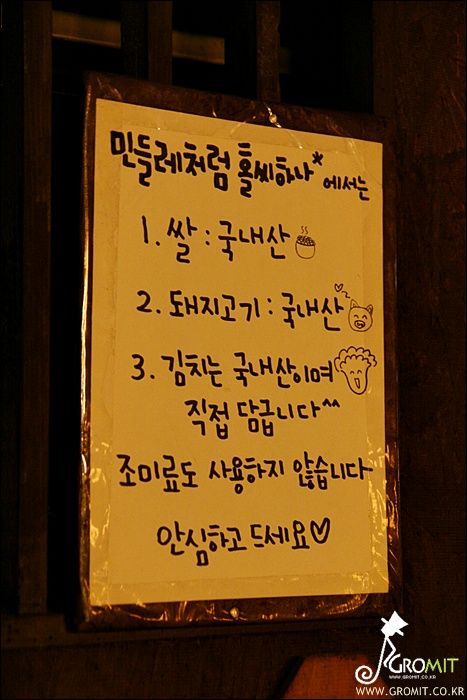 민들레처럼 홀씨하나* 에서는
1. 쌀 : 국내산
2. 돼지고기 : 국내산
3. 김치는 국내산이며
직접 담급니다^^
조미료도 사용하지 않습니다
안심하고 드세요♡
GROMIT
WWW.GROMIT.CO.KR
WWW.GROMIT.CO.KR